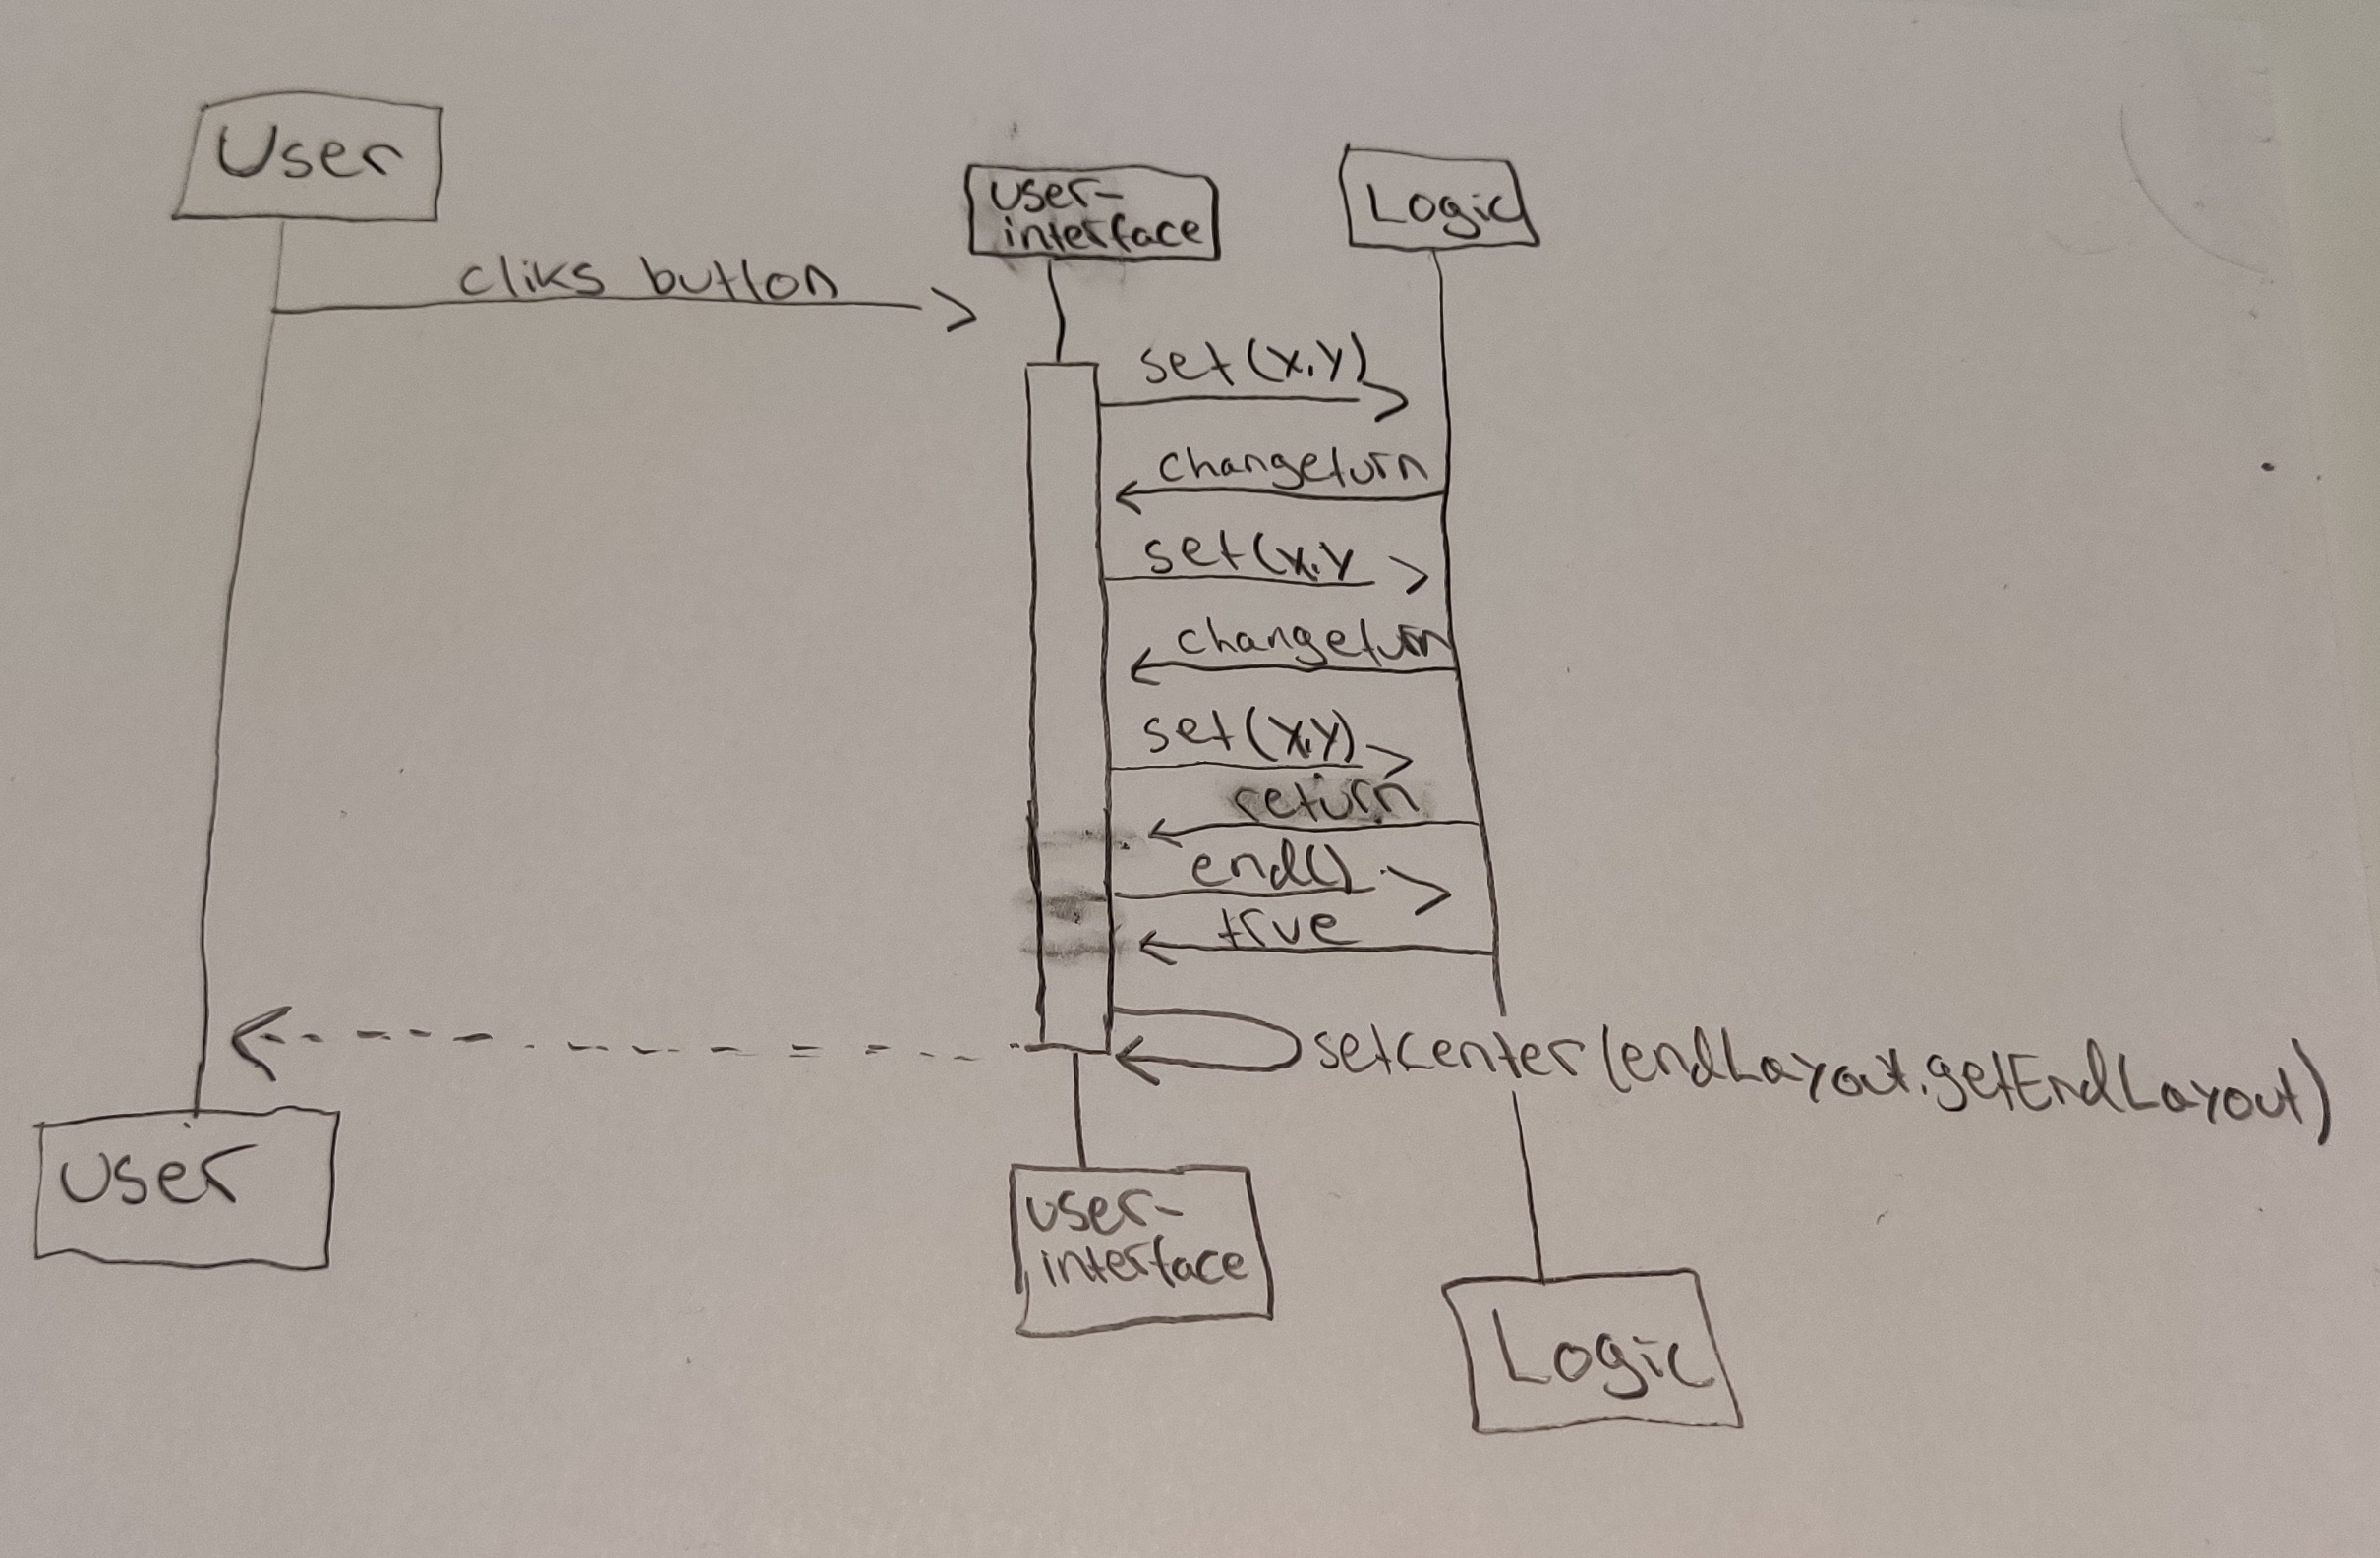 User
user-
interface
Logic
cliks button
set(x,y)
changeturn
set(x,y
changeturn
set(x,y)
return
end()
true
setcenter(endLayout.getEndLayout)
user
user-
interface
Logic